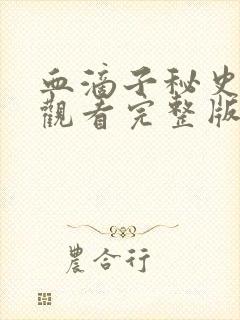 血滴子秘史
觀看完整版
農合行